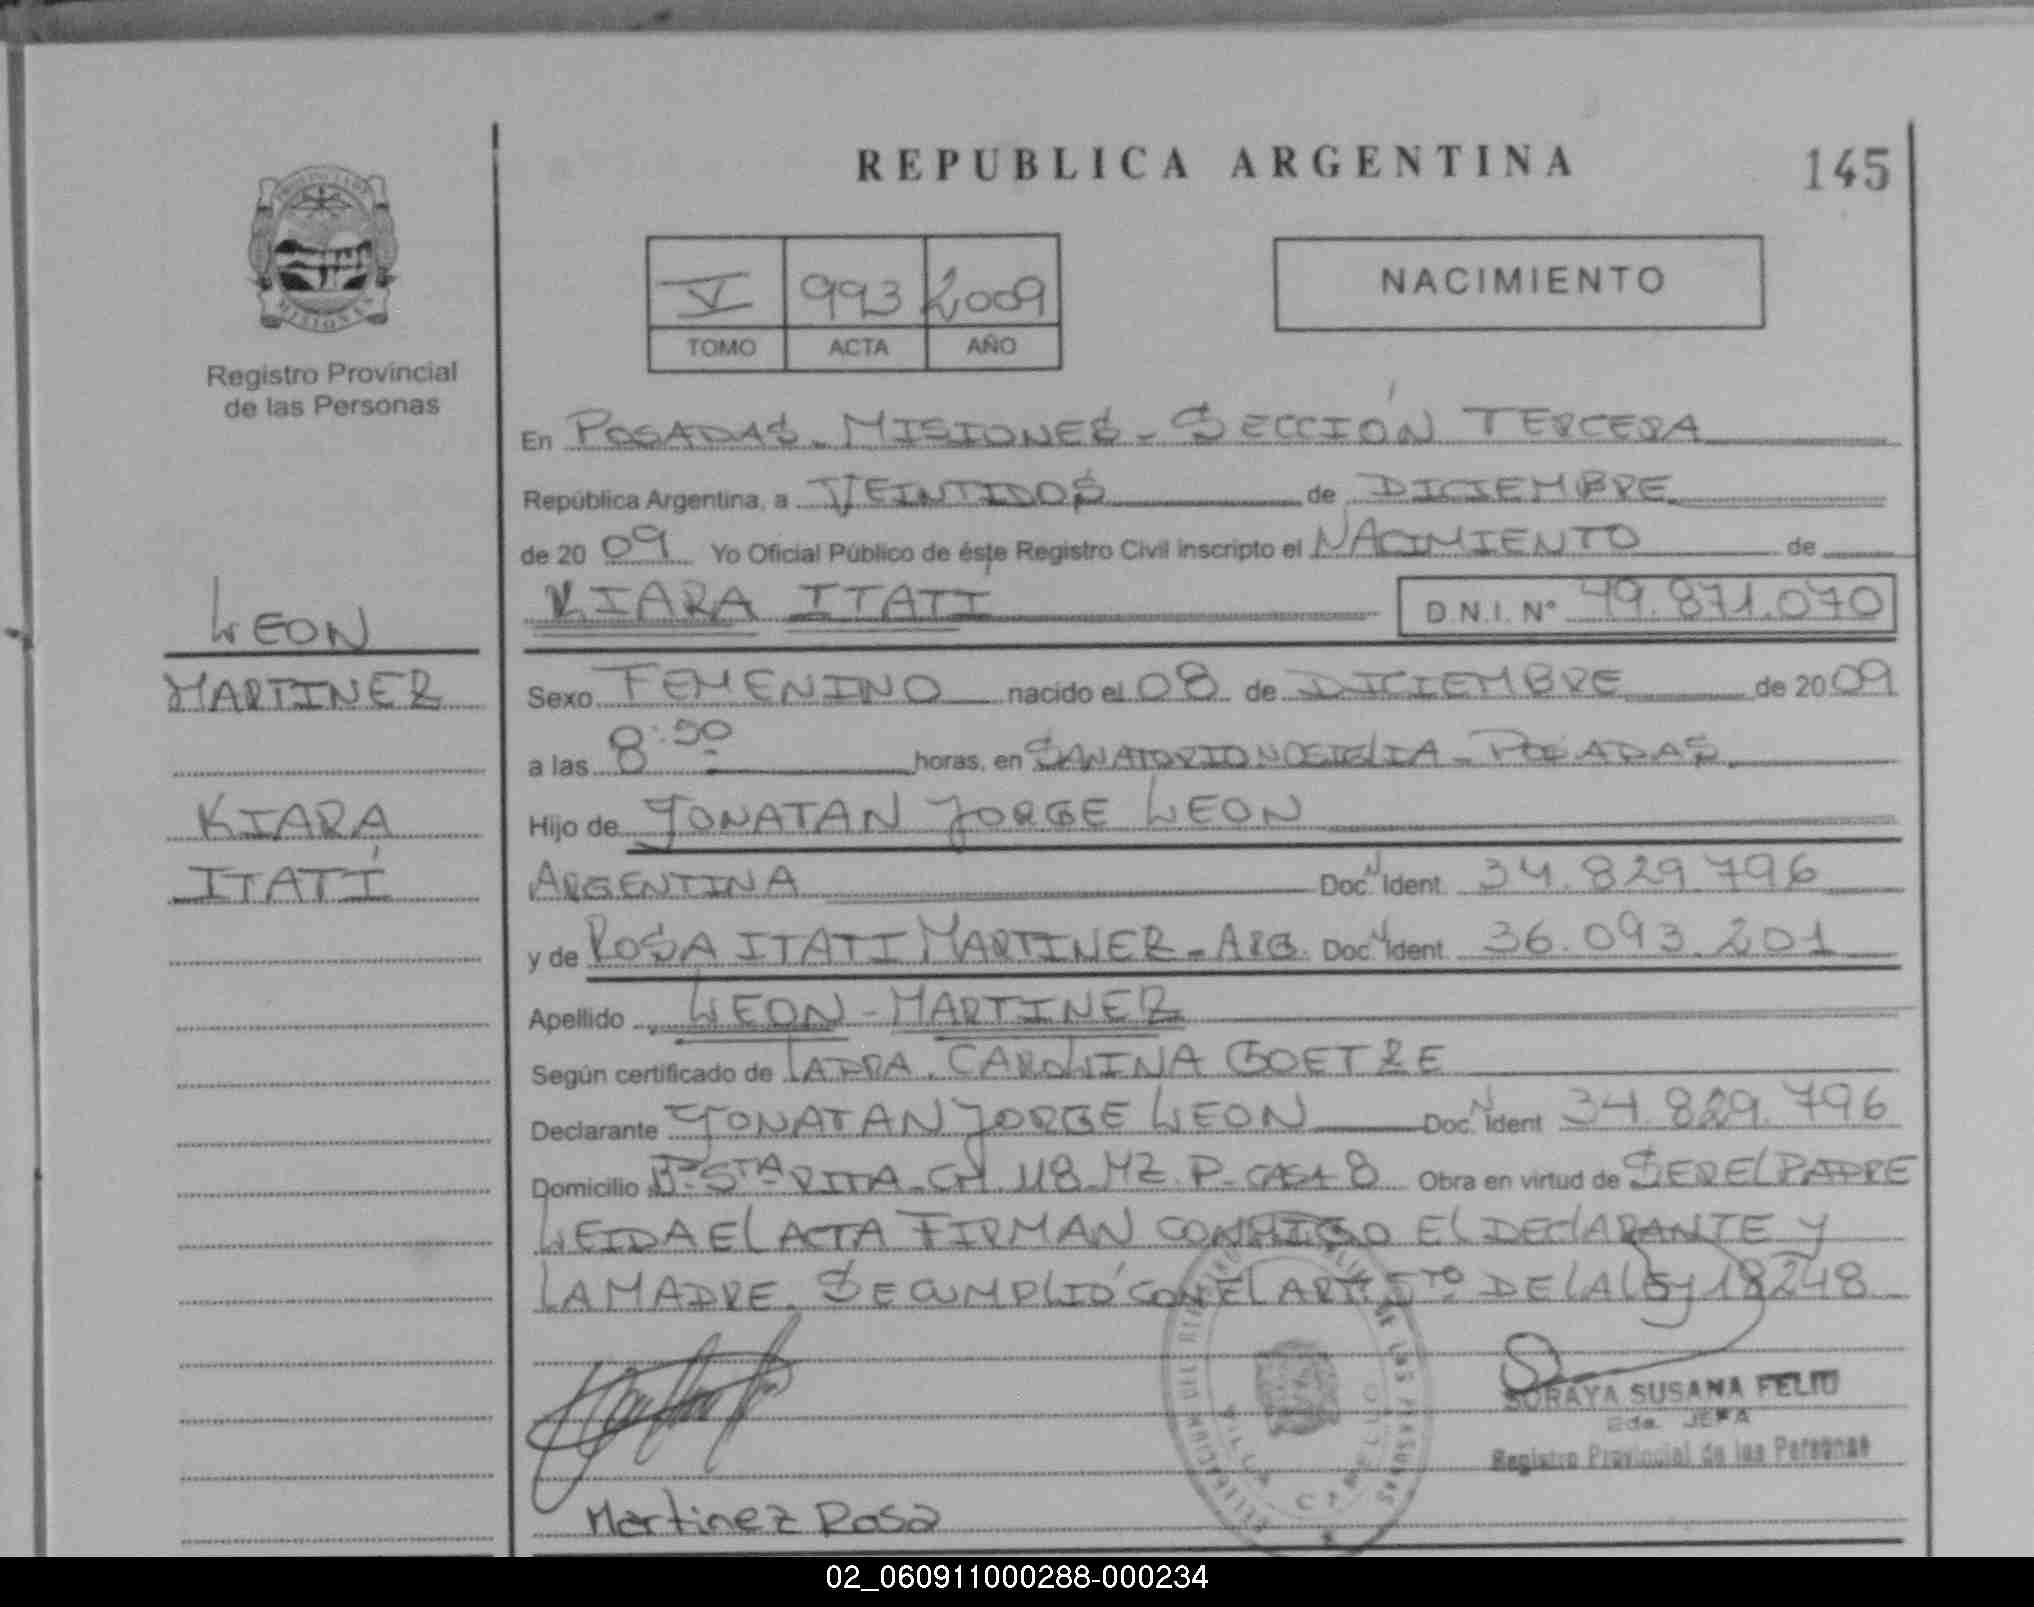 REPUBLICA ARGENTINA
145
MISIONES
Registro Provincial
de las Personas
V 993 2009
TOMO ACTA AÑO
NACIMIENTO
En POSADAS - MISIONES - SECCIÓN TERCERA
República Argentina, a VEINTIDOS de DICIEMBRE
de 2009 Yo Oficial Público de éste Registro Civil inscripto el NACIMIENTO de
KIARA ITATI D.N.I. N° 49.871.070
LEON
MARTINEZ
KIARA
ITATÍ
Sexo FEMENINO nacido el 08 de DICIEMBRE de 2009
a las 8:50 horas, en SANATORIO NOSIGLIA - POSADAS
Hijo de JONATAN JORGE LEON
ARGENTINA Doc. Ident. 34.829.796
y de ROSA ITATI MARTINEZ - ARG. Doc. Ident. 36.093.201
Apellido LEON - MARTINEZ
Según certificado de LA DRA. CAROLINA GOETZE
Declarante JONATAN JORGE LEON Doc. Ident 34.829.796
Domicilio Bº STA RITA - CH 118 MZ. P - CASA 8 Obra en virtud de SER EL PADRE
LEIDA EL ACTA FIRMAN CONMIGO EL DECLARANTE Y
LA MADRE. SE CUMPLIÓ CON EL ART. 5TO DE LA LEY 18248
SORAYA SUSANA FELIU
2da. JEFA
Registro Provincial de las Personas
Martinez Rosa
02_060911000288-000234